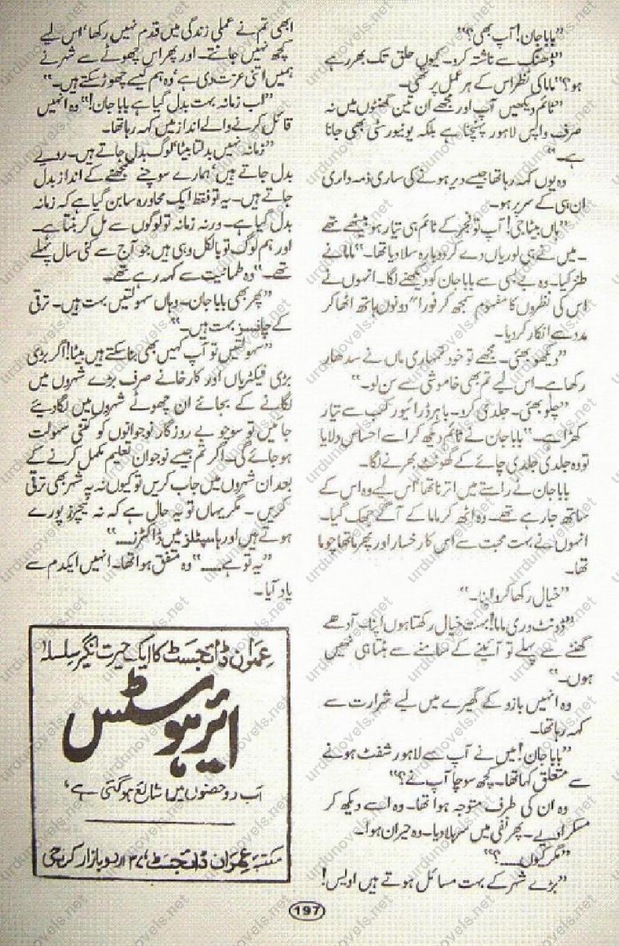 "بابا جان! آپ بھی؟"
"ڈھنگ سے ناشتہ کرو۔ کیوں حلق تک بھر رہے
ہو؟" ماما کی نظر اس کے ہر عمل پر تھی۔
"ٹائم دیکھیں آپ اور مجھے ان تین گھنٹوں میں نہ
صرف واپس لاہور پہنچنا ہے بلکہ یونیورسٹی بھی جانا
ہے۔"
وہ یوں کہہ رہا تھا جیسے دیر ہونے کی ساری ذمہ داری
ان ہی کے سر پر ہو۔
"ہاں بیٹا جی! آپ تو فجر کے ٹائم ہی تیار ہو بیٹھے تھے
۔ میں نے ہی لوریاں دے کر دوبارہ سلا دیا تھا۔" ماما نے
طنز کیا۔ وہ بے بسی سے بابا جان کو دیکھنے لگا۔ انھوں نے
اس کی نظروں کا مفہوم سمجھ کر فوراً" دونوں ہاتھ اٹھا کر
مدد سے انکار کر دیا۔
"دیکھو بھئی۔ مجھے تو خود تمہاری ماں نے سدھار
رکھا ہے۔ اس لیے تم بھی خاموشی سے سن لو۔"
"چلو بھئی۔ جلدی کرو۔ باہر ڈرائیور کب سے تیار
کھڑا ہے۔" بابا جان نے ٹائم دیکھ کر اسے احساس دلایا
تو وہ جلدی جلدی چائے کے گھونٹ بھرنے لگا۔
بابا جان نے راستے میں اترنا تھا' اس لیے وہ اس کے
ساتھ جا رہے تھے۔ وہ اٹھ کر ماما کے آگے جھک گیا۔
انھوں نے بہت محبت سے اس کا رخسار اور پھر ماتھا چوما
تھا۔
"خیال رکھا کرو اپنا۔"
"ڈونٹ وری ماما! بہت خیال رکھتا ہوں اپنا۔ آدھے
گھنٹے سے پہلے تو آئینے کے سامنے سے ہٹتا ہی نہیں
ہوں۔"
وہ انہیں بازو کے گھیرے میں لیے شرارت سے
کہہ رہا تھا۔
"بابا جان! میں نے آپ سے لاہور شفٹ ہونے
سے متعلق کہا تھا۔ کچھ سوچا آپ نے؟"
وہ ان کی طرف متوجہ ہوا تھا۔ وہ اسے دیکھ کر
مسکرا دیے۔ پھر نفی میں سر ہلا دیا۔ وہ حیران ہوا۔
"مگر کیوں.....؟"
"بڑے شہر کے بہت مسائل ہوتے ہیں اویس!
ابھی تم نے عملی زندگی میں قدم نہیں رکھا' اس لیے
کچھ نہیں جانتے۔ اور پھر اس چھوٹے سے شہر نے
ہمیں اتنی عزت دی ہے' وہ ہم کیسے چھوڑ سکتے ہیں۔"
"اب زمانہ بہت بدل گیا ہے بابا جان!" وہ انہیں
قائل کرنے والے انداز میں کہہ رہا تھا۔
"زمانہ نہیں بدلتا بیٹا' لوگ بدل جاتے ہیں۔ رویے
بدل جاتے ہیں' ہمارے سوچنے سمجھنے کے انداز بدل
جاتے ہیں۔ یہ تو فقط ایک محاورہ سا بن گیا ہے کہ زمانہ
بدل گیا ہے۔ ورنہ زمانہ تو لوگوں سے مل کر بنتا ہے۔
اور ہم لوگ تو بالکل وہی ہیں جو آج سے کئی سال پہلے
تھے۔" وہ طمانیت سے کہہ رہے تھے۔
"پھر بھی بابا جان۔ وہاں سہولتیں بہت ہیں۔ ترقی
کے چانسز بہت ہیں۔"
"سہولتیں تو آپ کہیں بھی بنا سکتے ہیں بیٹا! اگر بڑی
بڑی فیکٹریاں اور کارخانے صرف بڑے شہروں میں
لگانے کے بجائے ان چھوٹے شہروں میں لگا دیے
جائیں تو سوچو بے روزگار نوجوانوں کو کتنی سہولت
ہو جائے گی۔ اگر تم جیسے نوجوان تعلیم مکمل کرنے کے
بعد ان شہروں میں جاب کریں تو کیوں نہ یہ شہر بھی ترقی
کریں۔ مگر یہاں تو یہ حال ہے کہ نہ ٹیچرز پورے
ہوتے ہیں اور نہ ہاسپٹلز میں ڈاکٹرز....."
"یہ تو ہے....." وہ متفق ہوا تھا۔ انہیں ایکدم سے
یاد آیا۔
عمران ڈائجسٹ کا ایک حیرت انگیز سلسلہ
ائیر ہوسٹس
اب دو حصوں میں شائع ہو گئی ہے'
مکتبہ عمران ڈائجسٹ' ۳۷ اردو بازار کراچی
197
urdunovels.net